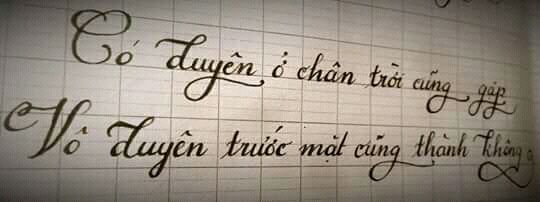 Có duyên ở chân trời cũng gặp
Vô duyên trước mặt cũng thành không